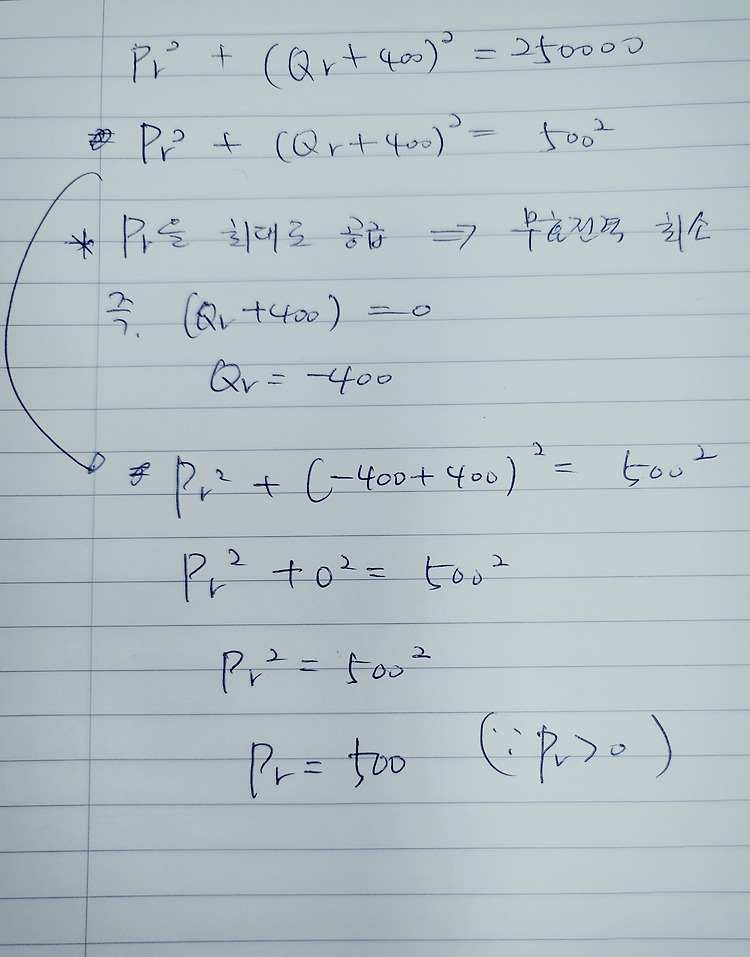 Pr² + (Qr+400)² = 250000
Pr² + (Qr+400)² = 500²
* Pr을 최대로 공급 ⇒ 무효전력 최소
즉. (Qr+400) = 0
Qr = -400
Pr² + (-400+400)² = 500²
Pr² + 0² = 500²
Pr² = 500²
Pr = 500 (∵ Pr>0)